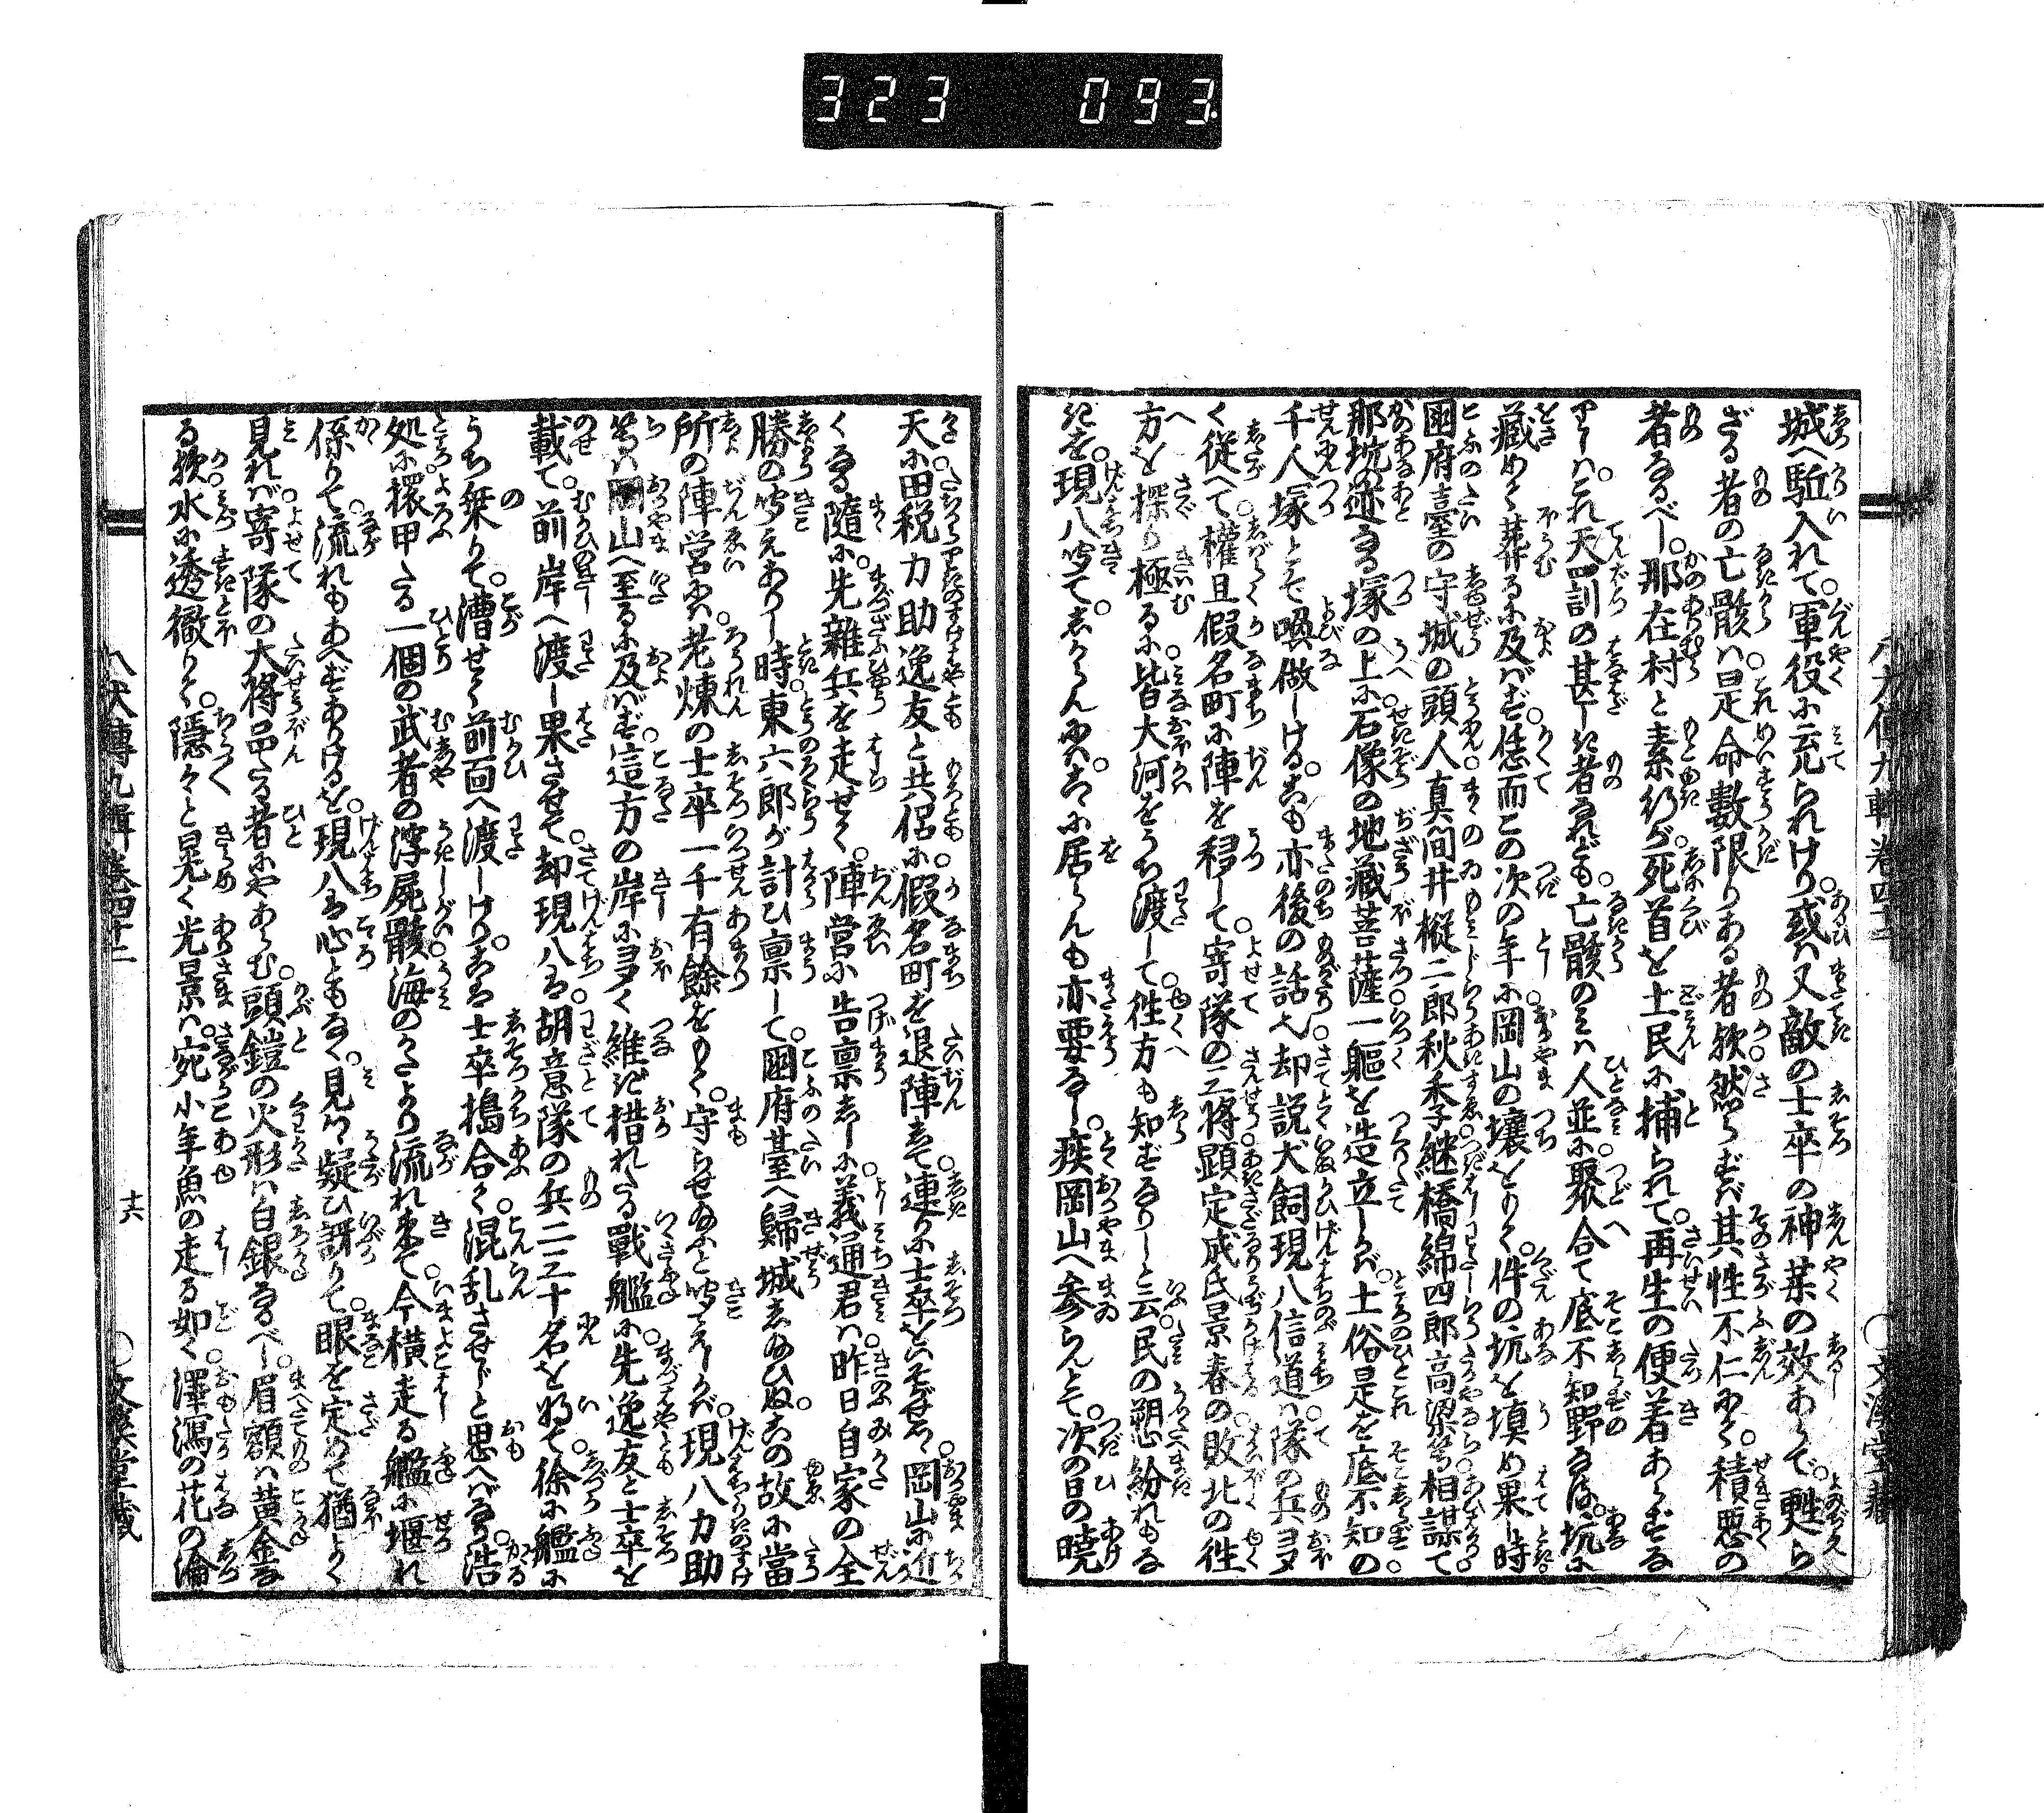 323 093
八犬傳九輯卷四十二
○文溪堂藏
城へ駈入れて。軍役に充られけり。或ハ又敵の士卒の神藥の效あらで。甦ら
ざる者の亡骸ハ。是命數限りある者歟。然らずバ其性不仁にて。積悪の
者なるべし。那在村と素行が。死首を土民に捕られて。再生の便着あらずな
りしハ。これ天罰の甚しき者なれども。亡骸のミハ人並に。聚合て底不知野なる。坑に
藏めて葬るに及バず。恁而この次の年に。岡山の壤をとりて。件の坑を塡め果し時
國府臺の守城の頭人。真間井樅二郎秋季。継橋綿四郎高梁等相謀て。
那坑の迹なる塚の上に。石像の地藏菩薩一軀を造立しが。土俗是を底不知の
千人塚とて喚做しける。こも亦後の話也。却説犬飼現八信道ハ。隊の兵多
く従へて。權且假名町に陣を移して。寄隊の三將顕定成氏景春の。敗北の徃
方を探り極るに。皆大河をうち渡して。徃方も知ずなりしと云。民の愬紛れもな
きを。現八吹て。しからんにハ。こゝに居らんも亦要なし。疾岡山へ参らんとて。次の日の曉
天に。田税力助逸友と共侶に。假名町を退陣して。連りに士卒をいそがせて。岡山に近
くなる隨に。先雜兵を走せて。陣營に告稟しゝに。義通君ハ。昨日自家の全
勝の吹えありし時。東六郎が計ひ稟して。國府臺へ歸城したまひぬ。この故に當
所の陣營にハ。老煉の士卒一千有餘をもて。守らせ給ふと吹えしかバ。現八力助
等ハ。岡山へ至るに及バず。這方の岸に多く維ぎ措れたる戰艦に。先逸友と士卒を
載て。前岸へ渡し果させて。却現八ハ。胡意隊の兵二三十名を將て。徐に艦に
うち乘りて。漕せて前面へ渡しけり。こハ士卒搗合て。混乱させじと思へバなり。浩
処に。擐甲たる一個の武者の浮屍骸。海のかたより流れ來て。今横走る艦に堰れ
係りて。流れもあへずありけるを。現八ハ心ともなく。見つゝ疑ひ訝りて。眼を定めて猶よく
見れバ。寄隊の大將だる者にやあらむ。頭鎧の火形ハ白銀なるべし。眉額ハ黄金な
る歟。水に透徹りて。隱々と晃く光景ハ。宛小年魚の走る如く。澤瀉の花の淪
八犬傳九輯卷四十二
十六
○文溪堂藏